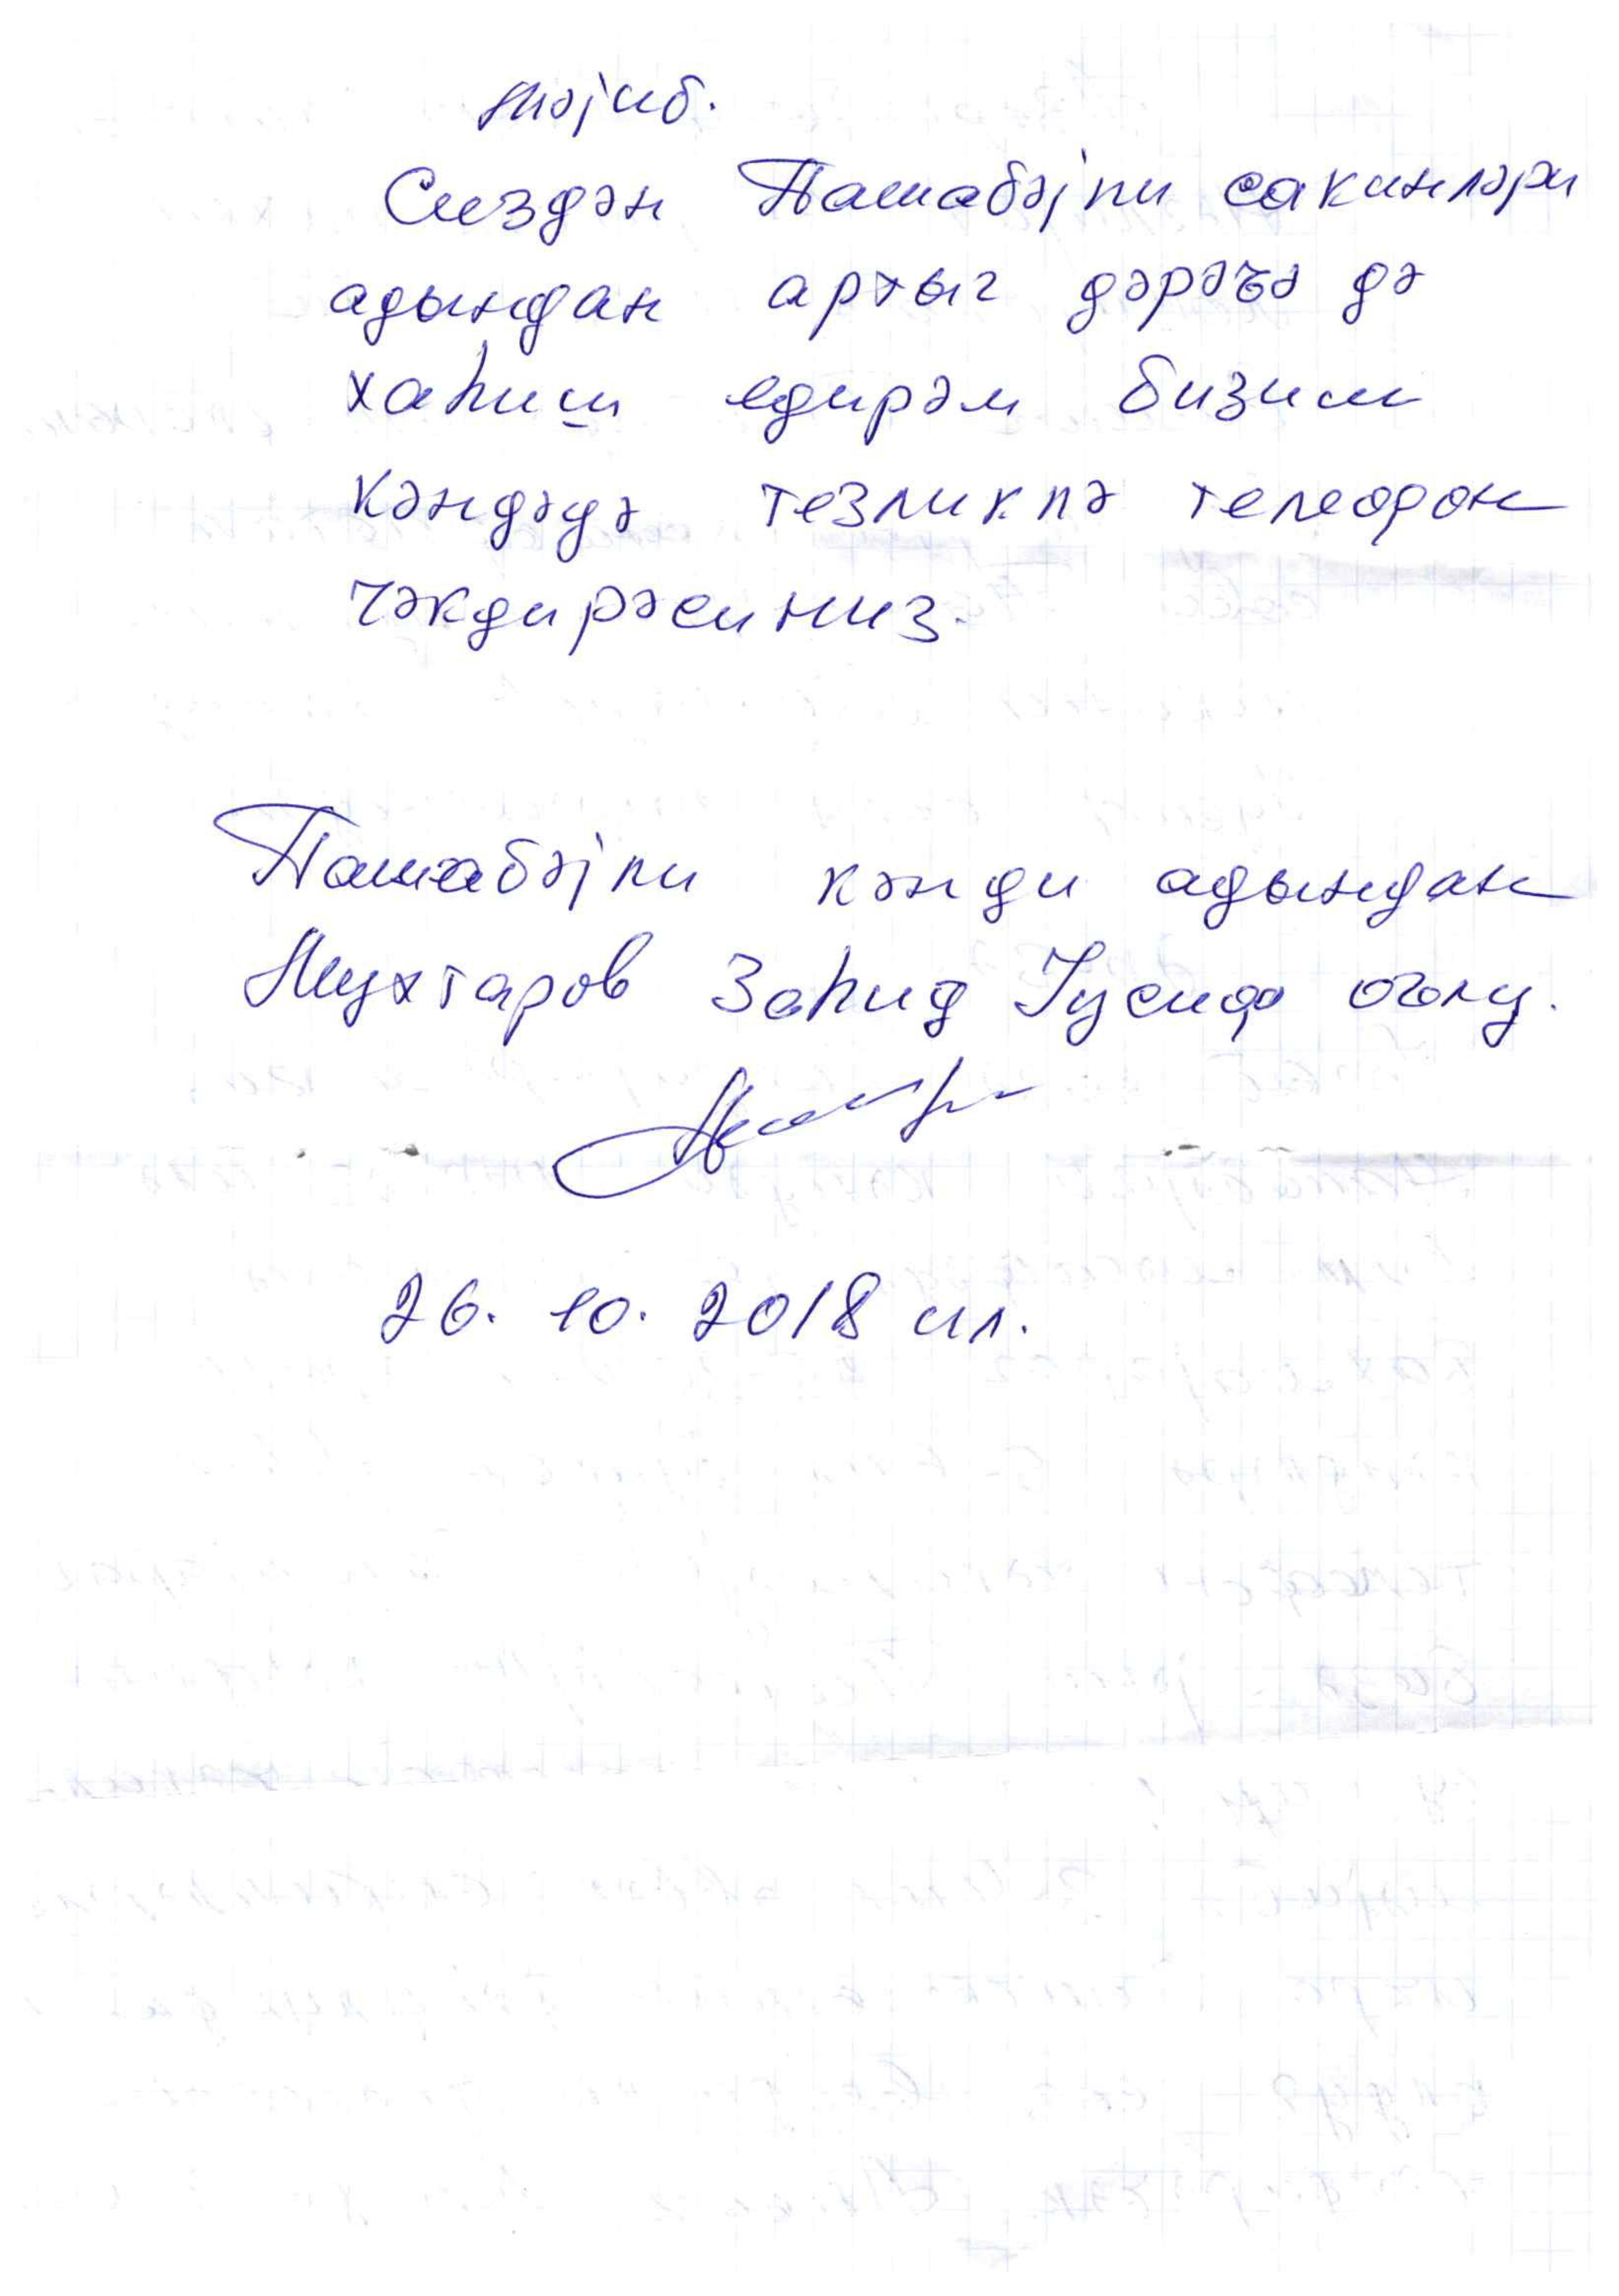 Сиздән Пашабәјли сакинләри
адындан артыг дәрәҹә дә
хаһиш едирәм бизим
кәндәдә тезликлә телефон
чәкдирәсиниз.
Пашабәјли кәнди адындан
Мухтаров Заһид Јусиф оғлу.
26. 10. 2018 ил.